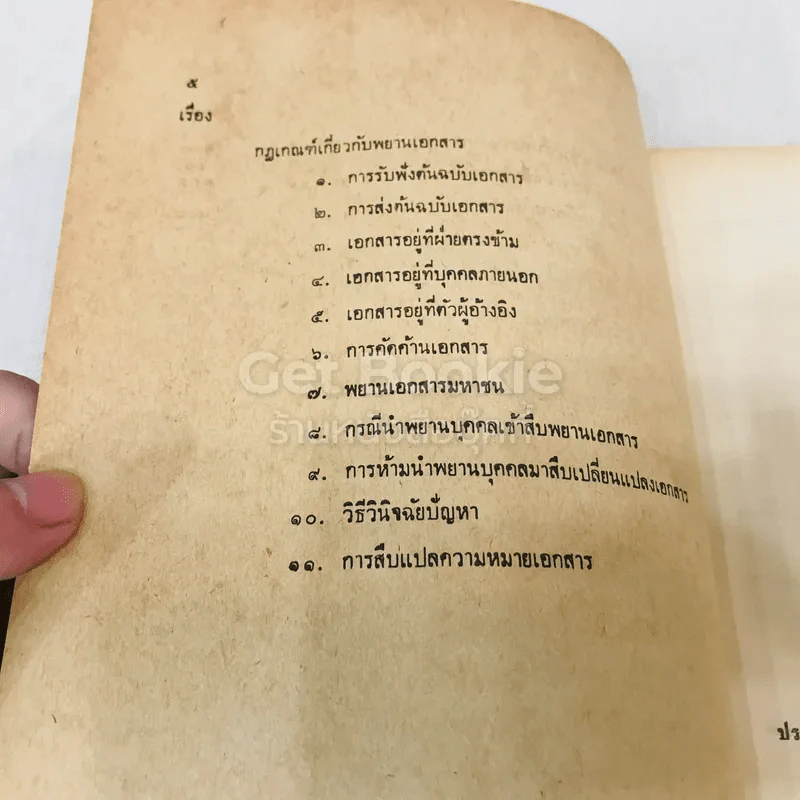 ๕
เรื่อง
กฎเกณฑ์เกี่ยวกับพยานเอกสาร
๑. การรับฟังต้นฉบับเอกสาร
๒. การส่งต้นฉบับเอกสาร
๓. เอกสารอยู่ที่ฝ่ายตรงข้าม
๔. เอกสารอยู่ที่บุคคลภายนอก
๕. เอกสารอยู่ที่ตัวผู้อ้างอิง
๖. การคัดค้านเอกสาร
Get Bookie
๗. พยานเอกสารมหาชน
๘. กรณีนำพยานบุคคลเข้าสืบพยานเอกสาร
๙. การห้ามนำพยานบุคคลมาสืบเปลี่ยนแปลงเอกสาร
๑๐. วิธีวินิจฉัยปัญหา
๑๑. การสืบแปลความหมายเอกสาร
ปร